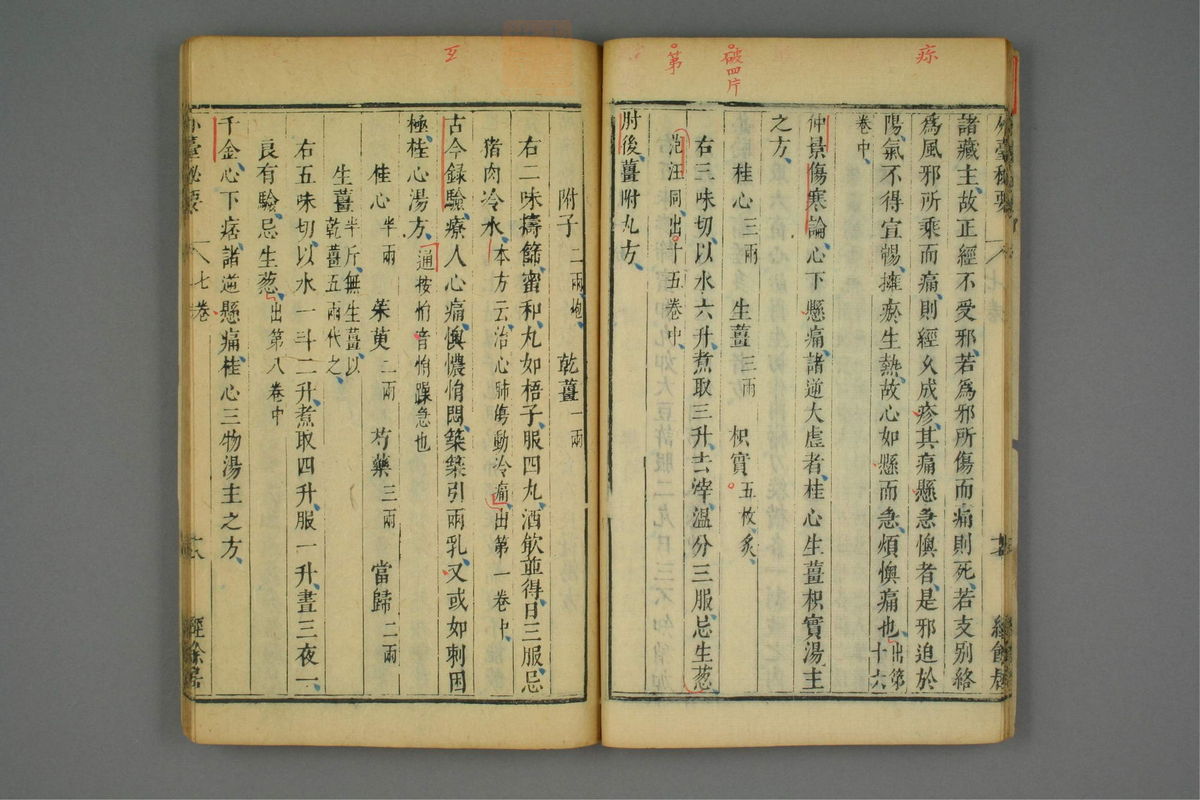 疹
破四片
第
外臺秘要
七卷
經餘居
諸藏主、故正經不受邪若為邪所傷而痛則死、若支別絡
為風邪所乘而痛、則經久成疹、其痛懸急懊者、是邪迫於
陽、氣不得宣暢、擁瘀生熱、故心如懸而急、煩懊痛也、出第十六
卷中、
仲景傷寒論、心下懸痛、諸逆大虛者、桂心生薑枳實湯主
之方、
桂心三兩 生薑三兩 枳實五枚、炙、
右三味切、以水六升、煮取三升、去滓、溫分三服、忌生葱、
范汪同出十五卷中、
肘後、薑附丸方、
互
附子二兩、炮、 乾薑一兩
右二味擣篩、蜜和、丸如梧子、服四丸、酒飲並得、日三服、忌
猪肉冷水、本方云、治心肺傷動冷痛、出第一卷中、
古今錄驗、療人心痛、懊憹悁悶、築築引兩乳、又或如刺困
極、桂心湯方、通按悁音悁躁急也
桂心半兩 茱萸二兩 芍藥三兩 當歸二兩
生薑半斤、無生薑、以乾薑五兩代之、
右五味切、以水一斗二升、煮取四升、服一升、晝三夜一、
良有驗、忌生葱、出第八卷中
千金、心下痞、諸逆懸痛、桂心三物湯主之方、
外臺秘要
七卷
經餘居